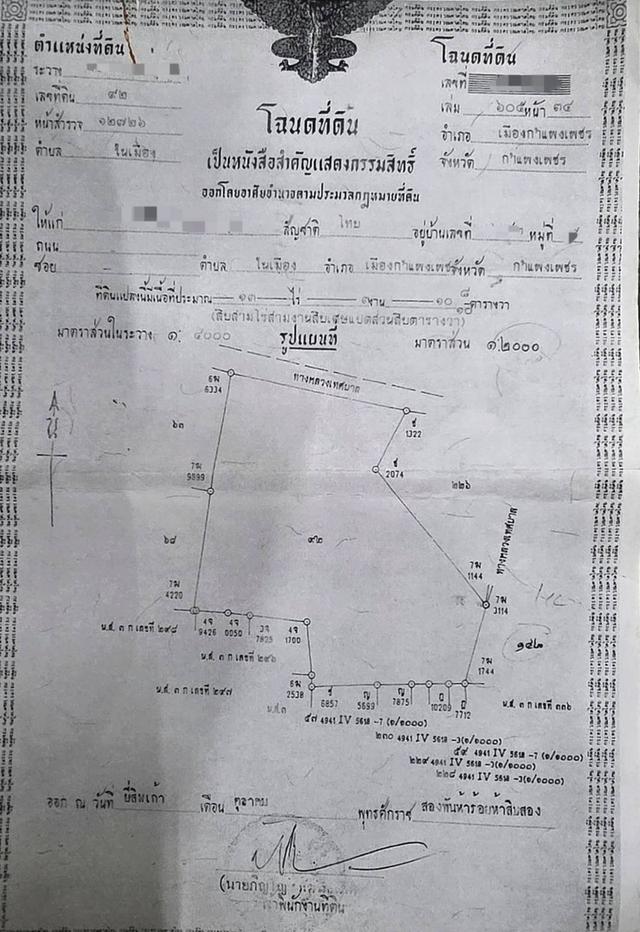 ตำแหน่งที่ดิน
ระวาง
เลขที่ดิน ๙๒
หน้าสำรวจ ๑๒๗๒๖
ตำบล ในเมือง
โฉนดที่ดิน
เลขที่
เล่ม ๖๐๕ หน้า ๓๔
อำเภอ เมืองกำแพงเพชร
จังหวัด กำแพงเพชร
โฉนดที่ดิน
เป็นหนังสือสำคัญแสดงกรรมสิทธิ์
ออกโดยอาศัยอำนาจตามประมวลกฎหมายที่ดิน
ให้แก่ สัญชาติ ไทย อยู่บ้านเลขที่ หมู่ที่
ถนน
ซอย ตำบล ในเมือง อำเภอ เมืองกำแพงเพชร จังหวัด กำแพงเพชร
ที่ดินแปลงนี้มีเนื้อที่ประมาณ ๑๓ ไร่ งาน ๑๐ ๘/๑๐ ตารางวา
(สิบสามไร่สามงานสิบเศษแปดส่วนสิบตารางวา)
มาตราส่วนในระวาง ๑: ๔๐๐๐ รูปแผนที่ มาตราส่วน ๑:๒๐๐๐
ทางหลวงเทศบาล
6ฆ
6334
ชี
1322
๖๓
ชี
2074
7ฆ
9899
๒๒๖
น
๖๘
๙๒
ทางหลวงเทศบาล
7ฆ
1144
7ฆ
4220
7ฆ
3114
4จ
9426
4จ
0050
3จ
7825
4จ
1700
น.ส. ๓ ก เลขที่ ๒๙๘
๑๔๒
น.ส. ๓ ก เลขที่ ๒๙๖
7ฆ
1744
6ฆ
2538
6857
5699
7875
10209
7712
น.ส. ๓ ก เลขที่ ๒๙๗
น.ส. ๓ ก เลขที่ ๓๓๖
น.ส.๓
๕๗ 4941 IV 5618 -7 (๑/๑๐๐๐)
๒๓๐ 4941 IV 5618 -3(๑/๑๐๐๐)
๕๙ 4941 IV 5618 -7 (๑/๑๐๐๐)
๒๒๙ 4941 IV 5618 -3(๑/๑๐๐๐)
๒๒๘ 4941 IV 5618 -3(๑/๑๐๐๐)
ออก ณ วันที่ ยี่สิบเก้า เดือน ตุลาคม พุทธศักราช สองพันห้าร้อยห้าสิบสอง
เจ้าพนักงานที่ดิน